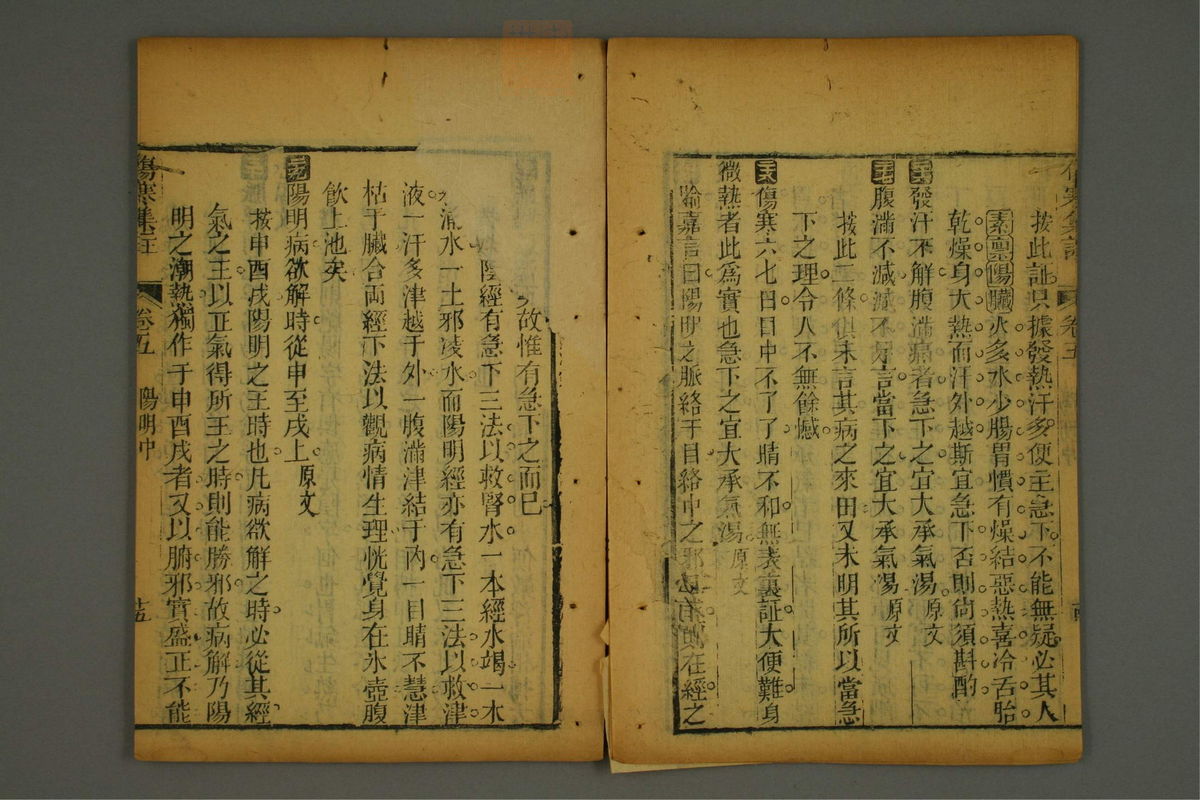 卷五
按此証只據發熱汗多便主急下不能無疑必其人
素禀陽臟火多水少腸胃慣有燥結惡熱喜冷舌胎
乾燥身大熱而汗外越斯宜急下否則尚須斟酌
發汗不解腹滿痛者急下之宜大承氣湯原文
腹滿不減減不足言當下之宜大承氣湯原文
按此二條俱未言其病之來由又未明其所以當急
下之理令人不無餘憾
傷寒六七日目中不了了睛不和無表裏証大便難身
微熱者此爲實也急下之宜大承氣湯原文
喻嘉言曰陽明之脈絡于目絡中之邪在經之
故惟有急下之而已
陰經有急下三法以救腎水一本經水竭一木
水一土邪凌水而陽明經亦有急下三法以救津
液一汗多津越于外一腹滿津結于內一目睛不慧津
枯于臟合兩經下法以觀病情生理恍覺身在氷壺腹
飲上池矣
陽明病欲解時從申至戌上原文
按申酉戌陽明之王時也凡病欲解之時必從其經
氣之王以正氣得所王之時則能勝邪故病解乃陽
明之潮熱獨作于申酉戌者又以腑邪實盛正不能
傷寒集註
卷五
陽明中